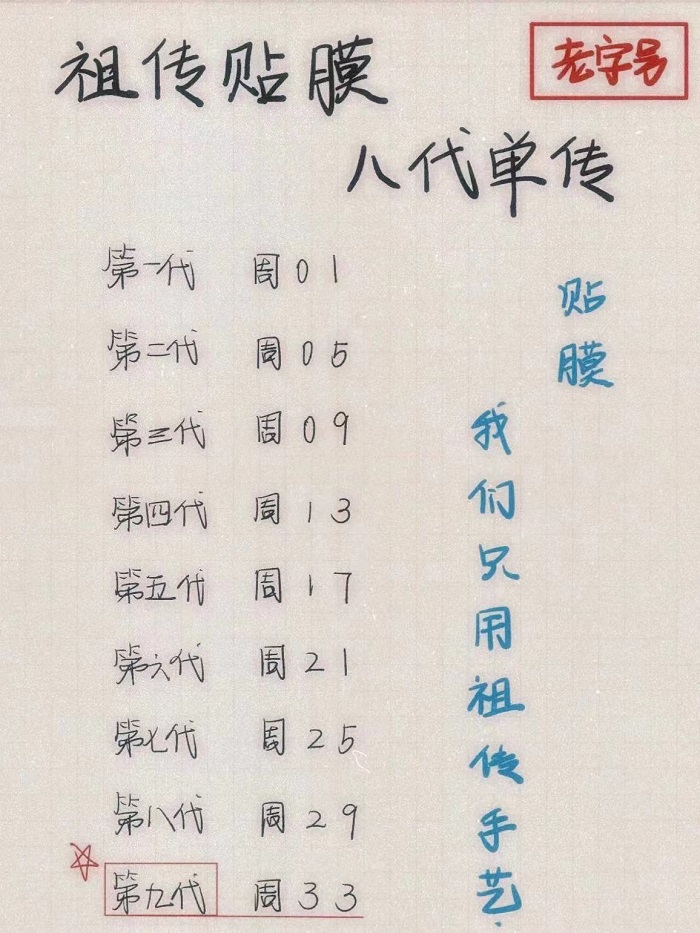 祖传贴膜
老字号
八代单传
第一代 周01
第二代 周05
第三代 周09
第四代 周13
第五代 周17
第六代 周21
第七代 周25
第八代 周29
第九代 周33
贴膜
我们只用祖传手艺.